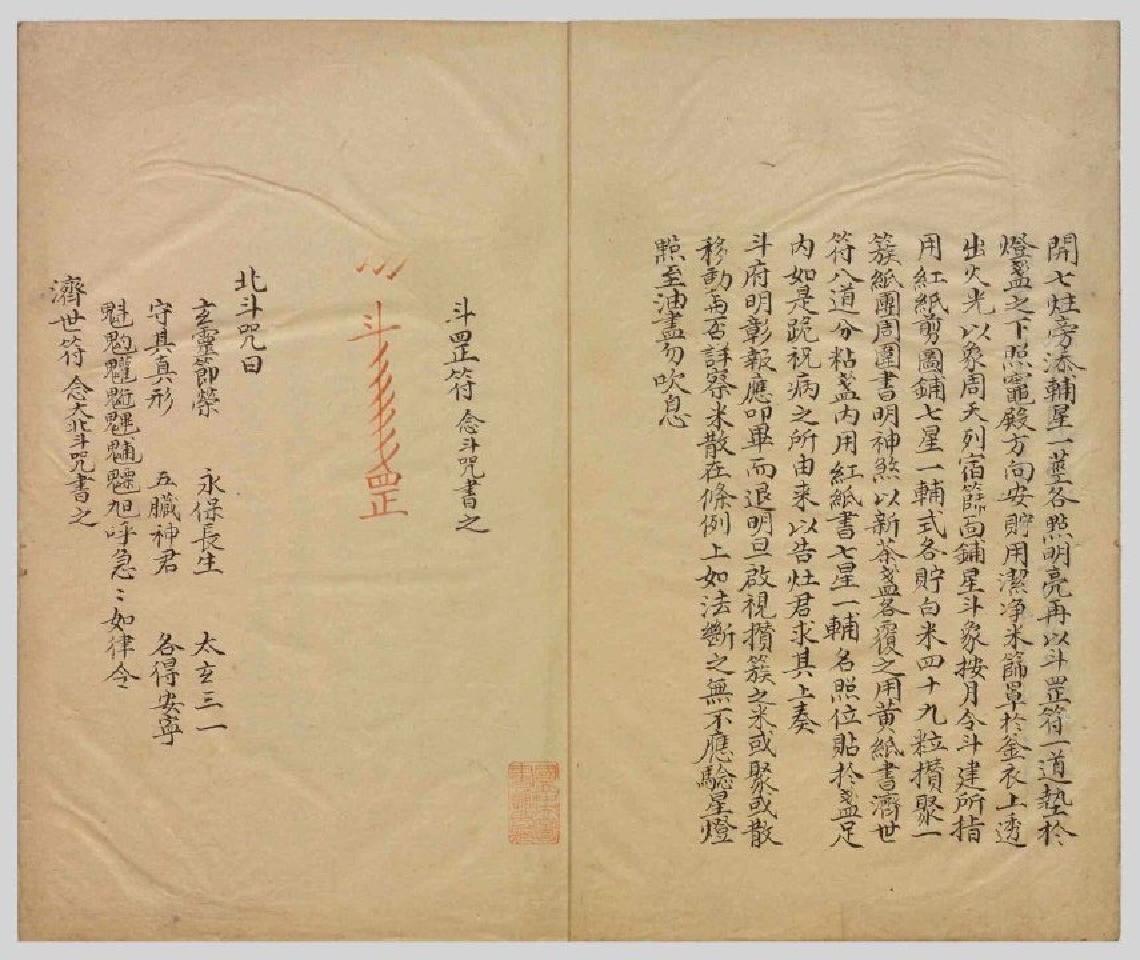 開七炷旁添輔星一莖各㸃明亮再以斗罡符一道墊於
燈盞之下照竈殿方向安貯用潔净米篩罩於釜衣上透
出火光以象周天列宿篩面鋪星斗象按月令斗建所指
用紅紙剪圖鋪七星一輔式各貯白米四十九粒攅聚一
簇紙團周圍書明神煞以新茶盞各覆之用黄紙書濟世
符八道分粘盞内用紅紙書七星一輔名照位貼於盞足
内如是跪祝病之所由来以告灶君求其上奏
斗府明彰報應叩畢而退明旦啟視攅簇之米或聚或散
移動與否詳察米散在條例上如法斷之無不應驗星燈
㸃至油盡勿吹息
斗罡符 念斗咒書之
斗罡
北斗咒曰
玄靈節榮 永保長生 太玄三一
守其真形 五臟神君 各得安寧
急〻如律令
濟世符 念大北斗咒書之